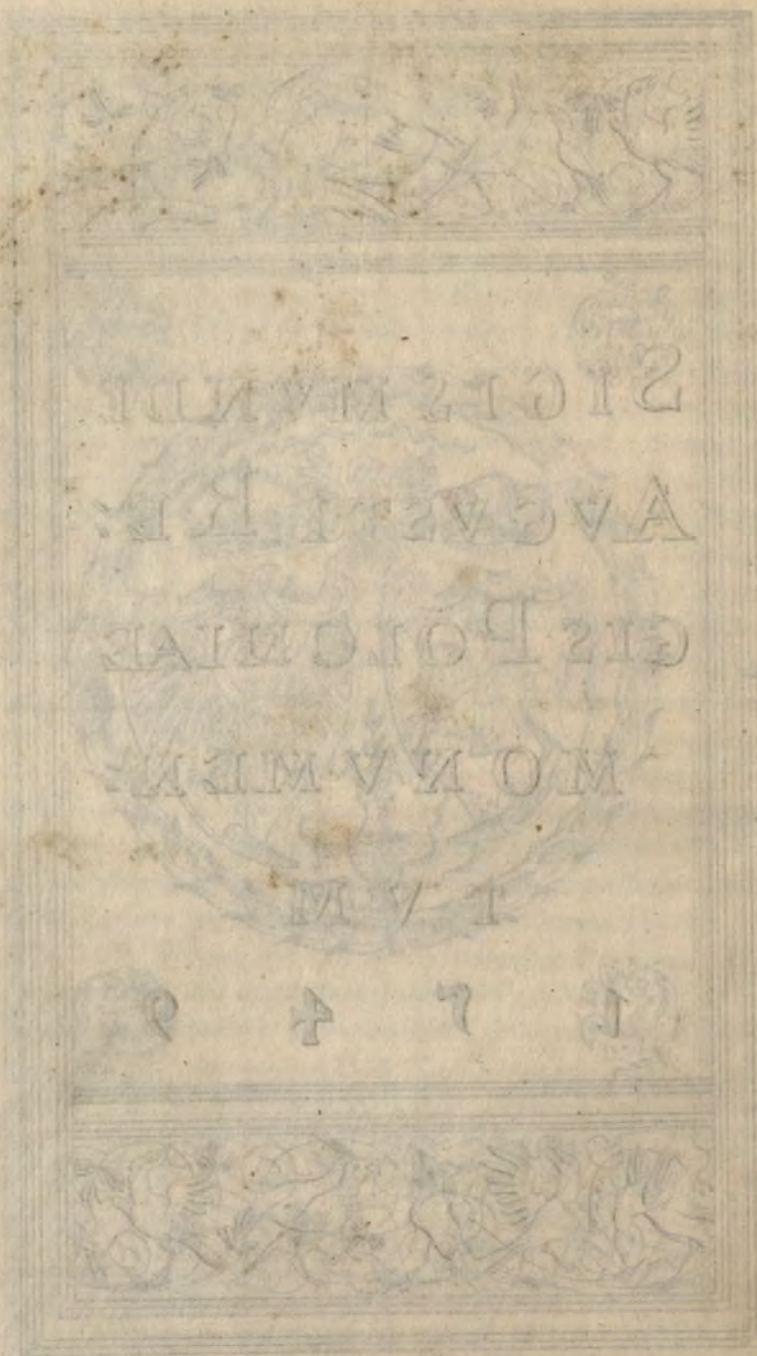 SIGISMVNDI
AVGVSTI RE:
GIS POLONIAE
MONVMEN:
TVM
1 5 4 9